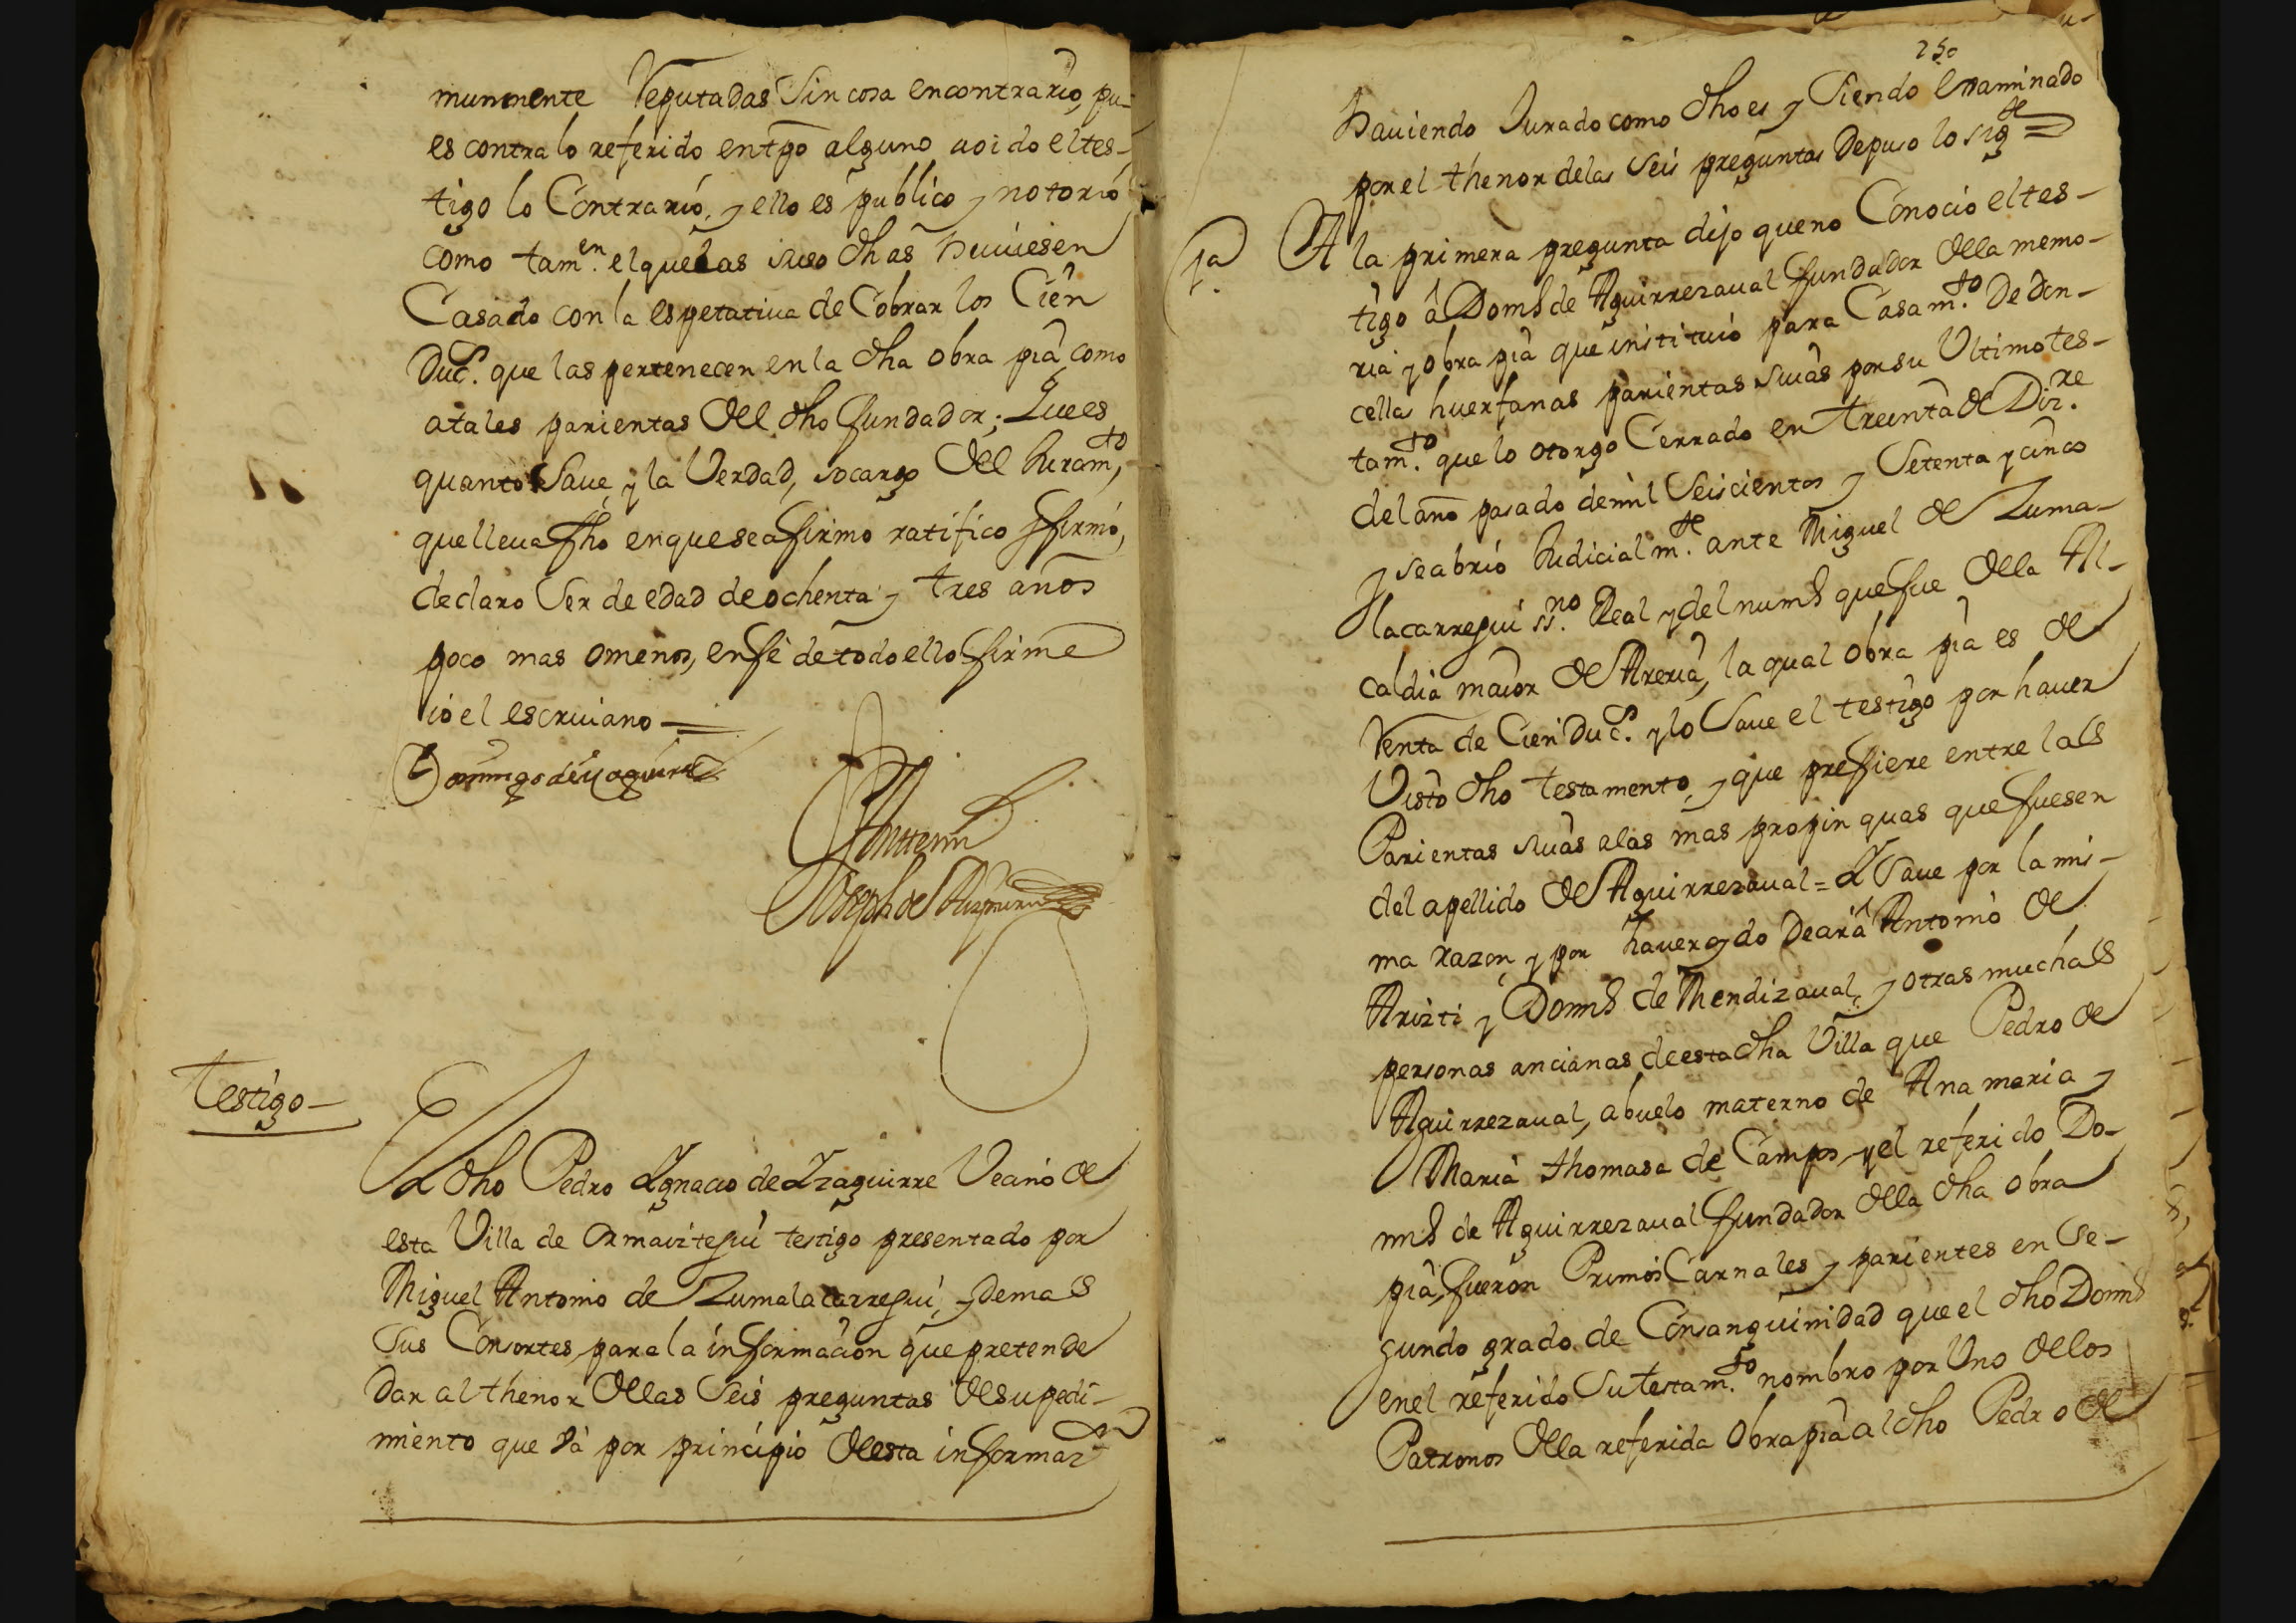 munmente Reputadas Sin cosa encontrario, pu-
es contra lo referido entpo alguno aoido eltes-
tigo lo Contrario, y ello es publico y notorio
como tam.en elquelas suso dhas huuiesen
Casado con la espetatiua de Cobrar los Cien
Duc.s que las pertenecen en la dha obra pia como
atales parientas del dho fundador; Que es
quanto Saue, y la Verdad, socargo del Juram.to,
quelleua fho enque se afirmo ratifico y firmó,
declaro Ser de edad de ochenta y tres años
poco mas omenos, enfé de todo ello firme
io el escriuano
Domingo de Yzaguirre
Antte mi
Joseph de
Testigo
El dho Pedro Ygnacio de Yzaguirre Vecino de
esta Villa de Ormaiztegui testigo presentado por
Miguel Antonio de Zumalacarregui, y demas
Sus Consortes para la informacion que pretende
Dar al thenor de las Seis preguntas de su pedi-
miento que Vá por principio de esta informaz.on
250
hauiendo Jurado como dho es y Siendo examinado
por el thenor delas Seis preguntas Depuso lo sig.te
1a
A la primera pregunta dijo queno Conocio eltes-
tigo á Dom.o de Aguirrezaual fundador de la memo-
ria y obra pia que instituió para Casam.to De don-
cellas huerfanas parientas suias por su Ultimo tes-
tam.to que lo otorgo Cerrado en treinta de Diz.re
del año pasado de mil Seiscientos y Setenta y cinco
y se abrió Judicialm.te ante Miguel de Zuma-
lacarregui ss.no Real y del num.o que fue de la Al-
caldia maior de Areria, la qual obra pia es de
Renta de Cien Duc.s y lo Saue el testigo por hauer
Visto dho testamento, y que prefiere entre las
Parientas suias alas mas propinquas que fuesen
del apellido de Aguirrezaual = Y Saue por la mis-
ma razon y por hauer oydo Decir a Antonio de
Arizti y Dom.o de Mendizaual, y otras muchas
personas ancianas de esta dha Villa que Pedro de
Aguirrezaual, abuelo materno de Ana maria y
Maria thomasa de Campos y el referido Do-
m.o de Aguirrezaual fundador de la dha obra
pia, fueron Primos Carnales y parientes en Se-
gundo grado de Consanguinidad que el dho Dom.o
enel referido Su testam.to nombro por Uno de los
Patronos de la referida Obra pia al dho Pedro de